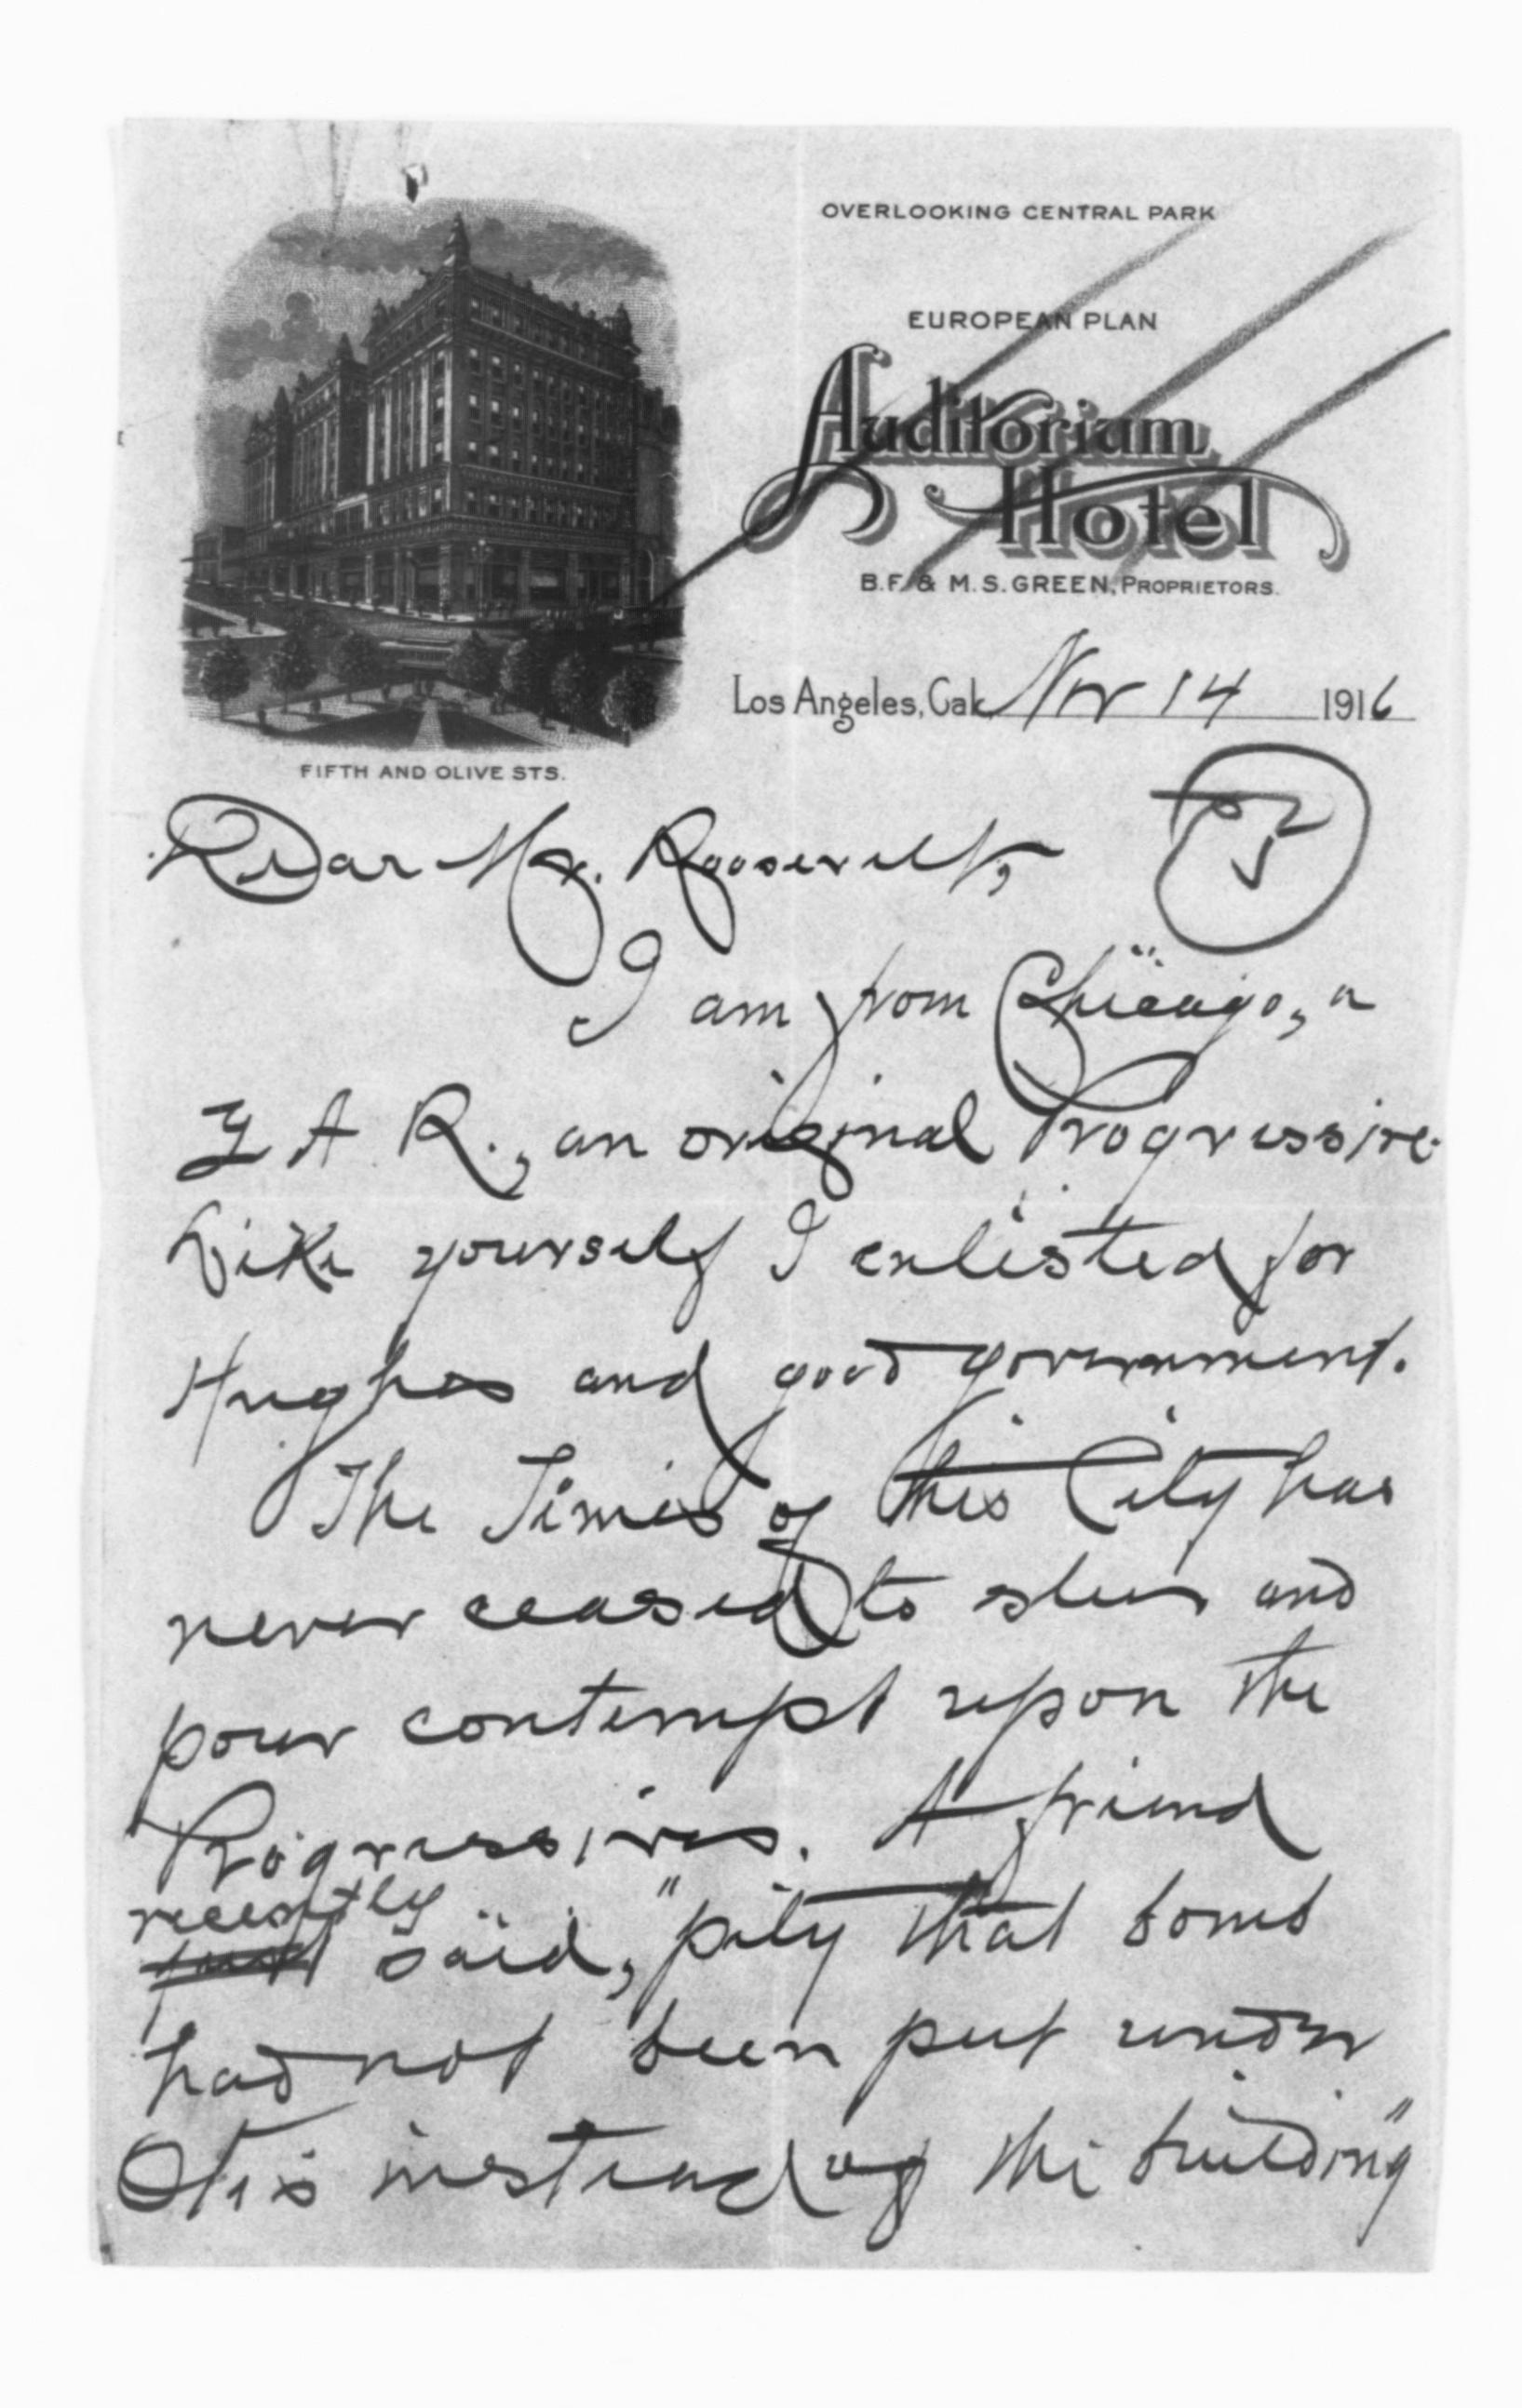 OVERLOOKING CENTRAL PARK
EUROPEAN PLAN
Auditorium
Hotel
B.F. & M.S. GREEN, PROPRIETORS.
Los Angeles, Cal. Nov 14 1916
FIFTH AND OLIVE STS.
Dear Mr. Roosevelt,
I am from Chicago, a
G A R., an original Progressive.
Like yourself I enlisted for
Hughes and good government.
The Times of this City has
never ceased to slur and
pour contempt upon the
Progressives. A friend
recently
said, "pity that bomb
had not been put under
Otis instead of the building"